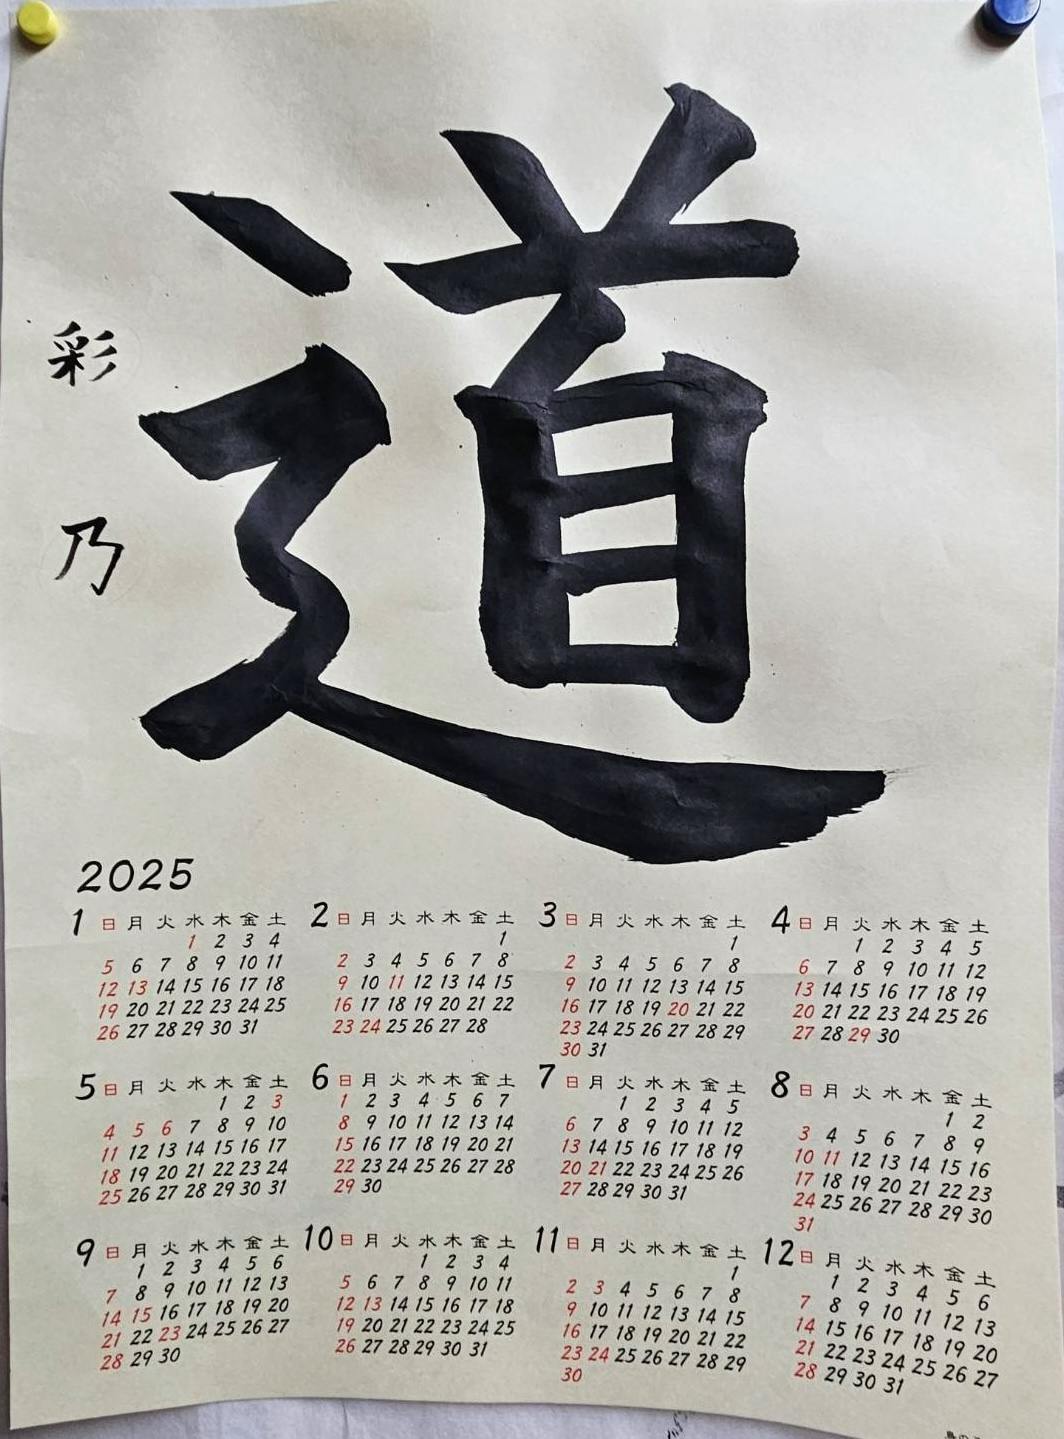 道
彩乃
2025
1
日 月 火 水 木 金 土
1 2 3 4
5 6 7 8 9 10 11
12 13 14 15 16 17 18
19 20 21 22 23 24 25
26 27 28 29 30 31
2
日 月 火 水 木 金 土
1
2 3 4 5 6 7 8
9 10 11 12 13 14 15
16 17 18 19 20 21 22
23 24 25 26 27 28
3
日 月 火 水 木 金 土
1
2 3 4 5 6 7 8
9 10 11 12 13 14 15
16 17 18 19 20 21 22
23 24 25 26 27 28 29
30 31
4
日 月 火 水 木 金 土
1 2 3 4 5
6 7 8 9 10 11 12
13 14 15 16 17 18 19
20 21 22 23 24 25 26
27 28 29 30
5
日 月 火 水 木 金 土
1 2 3
4 5 6 7 8 9 10
11 12 13 14 15 16 17
18 19 20 21 22 23 24
25 26 27 28 29 30 31
6
日 月 火 水 木 金 土
1 2 3 4 5 6 7
8 9 10 11 12 13 14
15 16 17 18 19 20 21
22 23 24 25 26 27 28
29 30
7
日 月 火 水 木 金 土
1 2 3 4 5
6 7 8 9 10 11 12
13 14 15 16 17 18 19
20 21 22 23 24 25 26
27 28 29 30 31
8
日 月 火 水 木 金 土
1 2
3 4 5 6 7 8 9
10 11 12 13 14 15 16
17 18 19 20 21 22 23
24 25 26 27 28 29 30
31
9
日 月 火 水 木 金 土
1 2 3 4 5 6
7 8 9 10 11 12 13
14 15 16 17 18 19 20
21 22 23 24 25 26 27
28 29 30
10
日 月 火 水 木 金 土
1 2 3 4
5 6 7 8 9 10 11
12 13 14 15 16 17 18
19 20 21 22 23 24 25
26 27 28 29 30 31
11
日 月 火 水 木 金 土
1
2 3 4 5 6 7 8
9 10 11 12 13 14 15
16 17 18 19 20 21 22
23 24 25 26 27 28 29
30
12
日 月 火 水 木 金 土
1 2 3 4 5 6
7 8 9 10 11 12 13
14 15 16 17 18 19 20
21 22 23 24 25 26 27
28 29 30 31